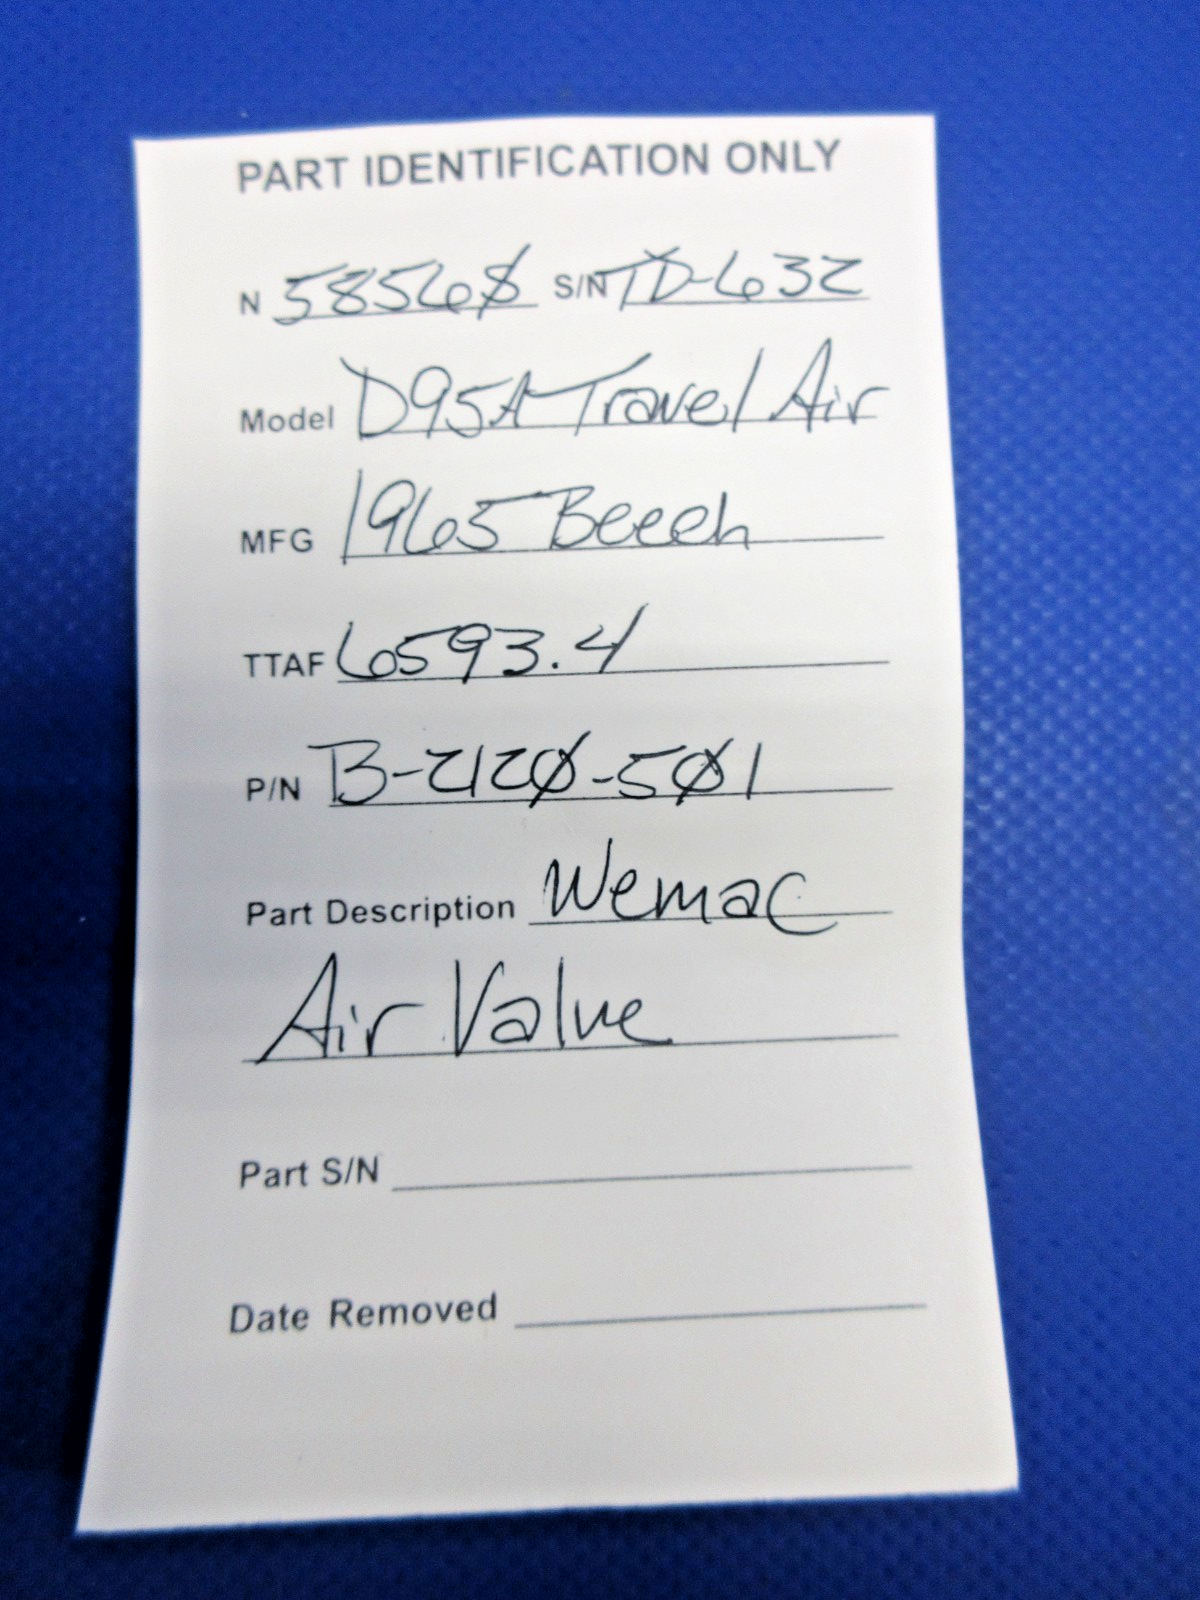 PART IDENTIFICATION ONLY
N 5856S S/N TD-632
Model D95A Travel Air
MFG 1965 Beech
TTAF 6593.4
P/N B-2120-501
Part Description Wemac
Air Valve
Part S/N
Date Removed